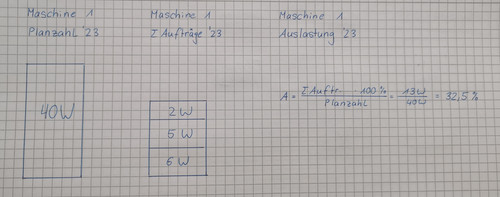 Maschine 1
Planzahl '23
Maschine 1
Σ Aufträge '23
Maschine 1
Auslastung '23
40W
2 W
5 W
6 W
A = Σ Auftr. 100% / Planzahl = 13W / 40W = 32,5 %